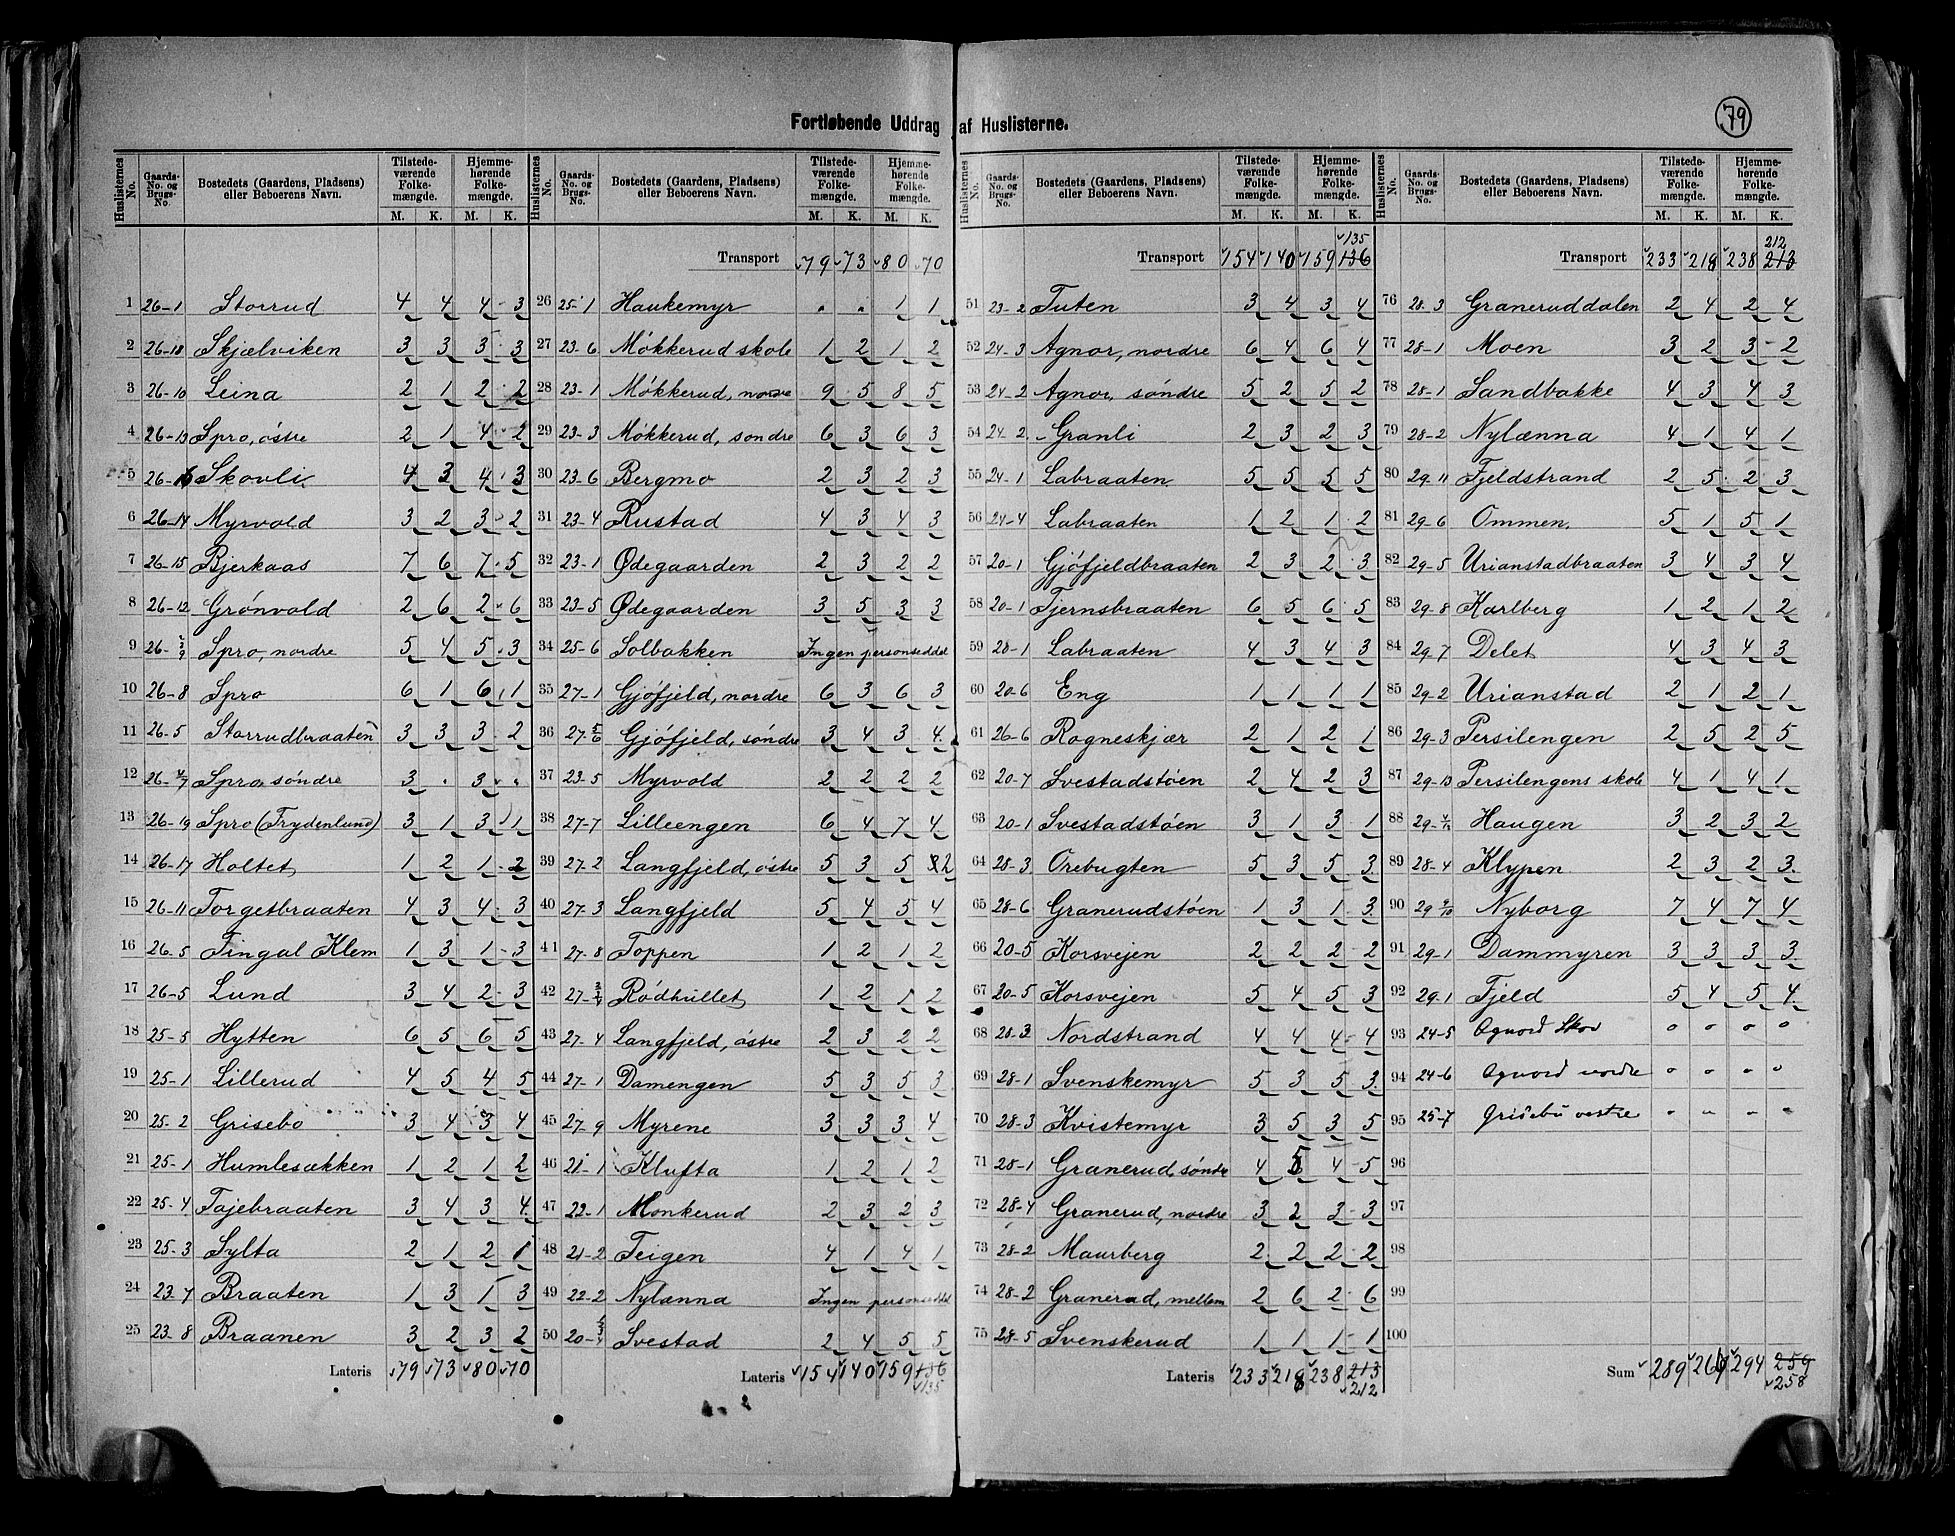 79
Fortløbende Uddrag af Huslisterne.
Huslisternes No. | Gaards-No. og Brugs-No. | Bostedets (Gaardens, Pladsens) eller Beboerens Navn. | Tilstedeværende Folkemængde. M. K. | Hjemmehørende Folkemængde. M. K.
1 26-1 Storrud 4 4 4 3
2 26-18 Skjælviken 3 3 3 3
3 26-10 Leina 2 1 2 2
4 26-13 Spro, østre 2 1 4 2
5 26-16 Skovli 4 3 4 3
6 26-14 Myrvold 3 2 3 2
7 26-15 Bjerkaas 7 6 7 5
8 26-12 Grønvold 2 6 2 6
9 26- Spro, nordre 5 4 5 3
10 26-8 Spro 6 1 6 1
11 26-5 Storrudbraaten 3 3 3 2
12 26- Spro, søndre 3 . 3 .
13 26-19 Spro (Frydenlund) 3 1 3 1
14 26-17 Holtet 1 2 1 2
15 26-11 Torgetbraaten 4 3 4 3
16 26-5 Fingal Klem 1 3 1 3
17 26-5 Lund 3 4 2 3
18 25-5 Hytten 6 5 6 5
19 25-1 Lillerud 4 5 4 5
20 25-2 Grisebo 3 4 3 4
21 25-1 Humlesækken 1 2 1 2
22 25-4 Tajebraaten 3 4 3 4
23 25-3 Sylta 2 1 2 1
24 23-7 Braaten 1 3 1 3
25 23-8 Braanen 3 2 3 2
Lateris 79 73 80 70
Huslisternes No. | Gaards-No. og Brugs-No. | Bostedets (Gaardens, Pladsens) eller Beboerens Navn. | Tilstedeværende Folkemængde. M. K. | Hjemmehørende Folkemængde. M. K.
Transport 79 73 80 70
26 25-1 Haukemyr . . 1 1
27 23-6 Møkkerud skole 1 2 1 2
28 23-1 Møkkerud, nordre 9 5 8 5
29 23-3 Møkkerud, søndre 6 3 6 3
30 23-6 Bergmo 2 3 2 3
31 23-4 Rustad 4 3 4 3
32 23-1 Ødegaarden 2 3 2 2
33 23-5 Ødegaarden 3 5 3 3
34 25-6 Solbakken Ingen personseddel
35 27-1 Gjøfjeld, nordre 6 3 6 3
36 27-5/6 Gjøfjeld, søndre 3 4 3 4
37 23-5 Myrvold 2 2 2 2
38 27-7 Lilleengen 6 4 7 4
39 27-2 Langfjeld, østre 5 3 5 2
40 27-3 Langfjeld 5 4 5 4
41 27-8 Toppen 1 2 1 2
42 27- Rødhullet 1 2 1 2
43 27-4 Langfjeld, østre 2 3 2 2
44 27-1 Damengen 5 3 5 3
45 27-9 Myrene 3 3 3 4
46 21-1 Klufta 1 2 1 2
47 22-1 Monkerud 2 3 2 3
48 21-2 Teigen 4 1 4 1
49 22-2 Nylænna Ingen personseddel
50 20- Svestad 2 4 5 5
Lateris 154 140 159 136
135
Huslisternes No. | Gaards-No. og Brugs-No. | Bostedets (Gaardens, Pladsens) eller Beboerens Navn. | Tilstedeværende Folkemængde. M. K. | Hjemmehørende Folkemængde. M. K.
135
Transport 154 140 159 136
51 23-2 Tuten 3 4 3 4
52 24-3 Agnor, nordre 6 4 6 4
53 24-2 Agnor, søndre 5 2 5 2
54 24-2 Granli 2 3 2 3
55 24-1 Labraaten 5 5 5 5
56 24-4 Labraaten 1 2 1 2
57 20-1 Gjøfjeldbraaten 2 3 2 3
58 20-1 Tjernsbraaten 6 5 6 5
59 28-1 Labraaten 4 3 4 3
60 20-6 Eng 1 1 1 1
61 26-6 Rogneskjær 2 1 2 1
62 20-7 Svestadstøen 2 4 2 3
63 20-1 Svestadstøen 3 1 3 1
64 28-3 Orebugten 5 3 5 3
65 28-6 Granerudstøen 1 3 1 3
66 20-5 Korsvejen 2 2 2 2
67 20-5 Korsvejen 5 4 5 3
68 28-3 Nordstrand 4 4 4 4
69 28-1 Svenskemyr 5 3 5 3
70 28-3 Kvistemyr 3 5 3 5
71 28-1 Granerud, søndre 4 5 4 5
72 28-4 Granerud, nordre 3 2 3 3
73 28-2 Maurberg 2 2 2 2
74 28-2 Granerud, mellem 2 6 2 6
75 28-5 Svenskerud 1 1 1 1
Lateris 233 218 238 213
212
Huslisternes No. | Gaards-No. og Brugs-No. | Bostedets (Gaardens, Pladsens) eller Beboerens Navn. | Tilstedeværende Folkemængde. M. K. | Hjemmehørende Folkemængde. M. K.
212
Transport 233 218 238 213
76 28-3 Graneruddalen 2 4 2 4
77 28-1 Moen 3 2 3 2
78 28-1 Sandbakke 4 3 4 3
79 28-2 Nylænna 4 1 4 1
80 29-11 Fjeldstrand 2 5 2 3
81 29-6 Ommen 5 1 5 1
82 29-5 Urianstadbraaten 3 4 3 4
83 29-8 Karlberg 1 2 1 2
84 29-7 Delet 4 3 4 3
85 29-2 Urianstad 2 1 2 1
86 29-3 Persilengen 2 5 2 5
87 29-13 Persilengens skole 4 1 4 1
88 29- Haugen 3 2 3 2
89 28-4 Klypen 2 3 2 3
90 29-9/10 Nyborg 7 4 7 4
91 29-1 Dammyren 3 3 3 3
92 29-1 Fjeld 5 4 5 4
93 24-5 Agnord Skov o o o o
94 24-6 Agnord nordre o o o o
95 25-7 Grisebu vestre " " " "
96
97
98
99
100
Sum 289 269 294 259
258